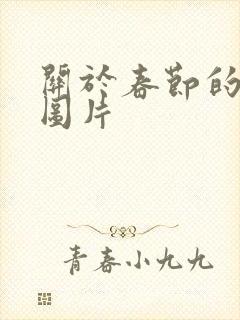 關於春節的
圖片
青春小九九